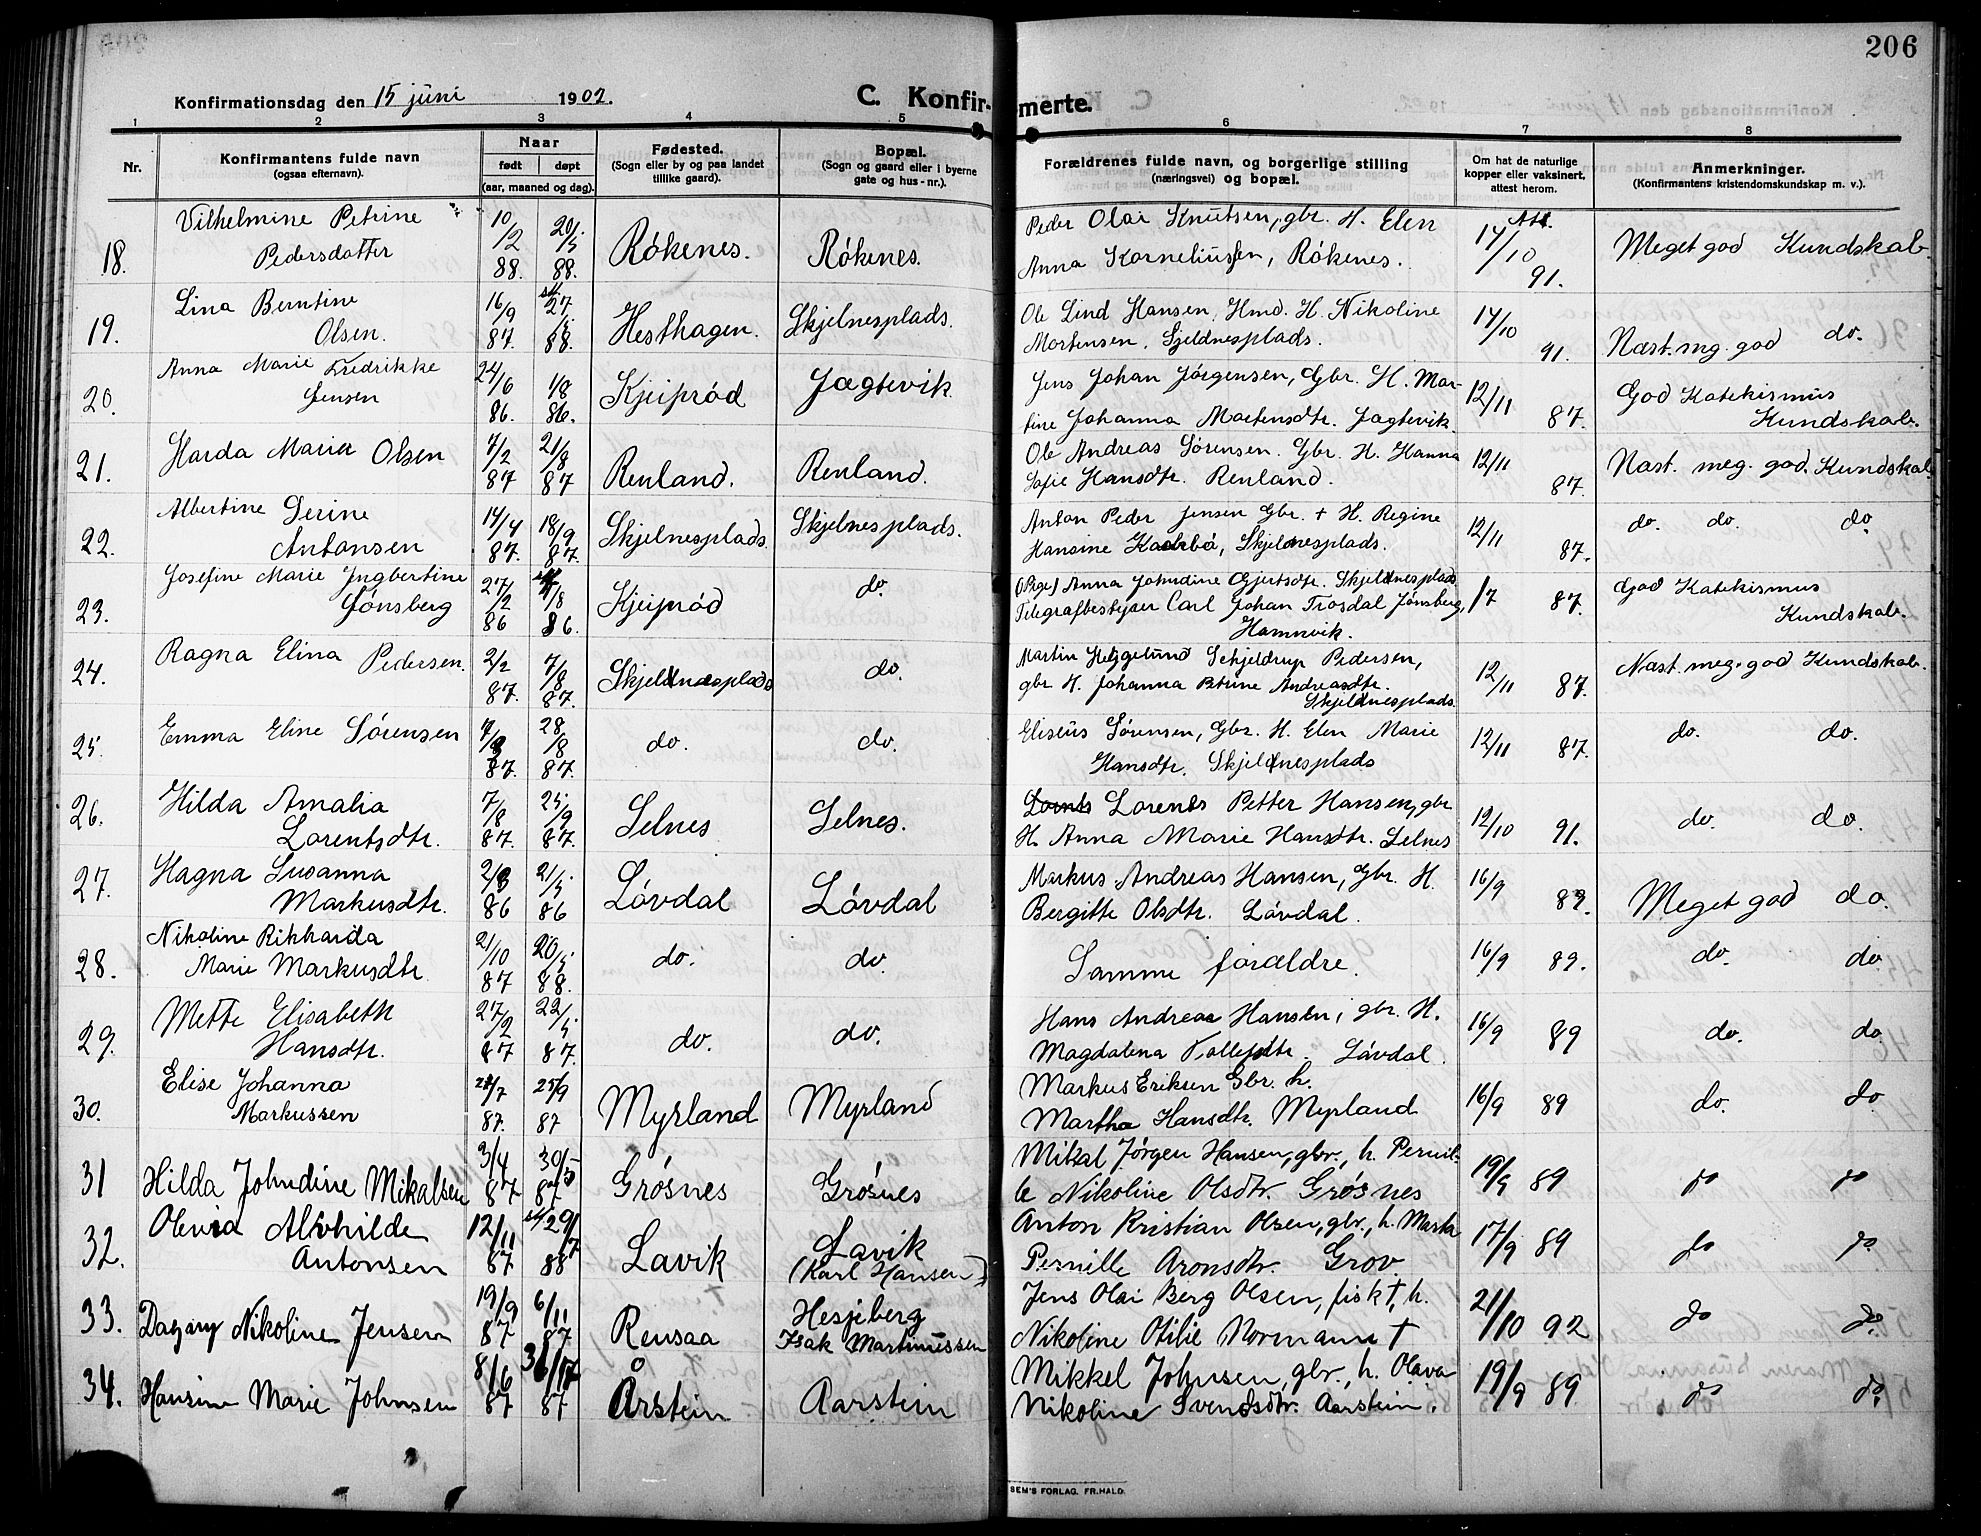 206
Konfirmationsdag den 15 juni 1902.
C. Konfirmerte.
1 2 3 4 5 6 7 8
Nr.
Konfirmantens fulde navn
(ogsaa efternavn).
Naar
født døpt
(aar, maaned og dag).
Fødested.
(Sogn eller by og paa landet
tillike gaard).
Bopæl.
(Sogn og gaard eller i byerne
gate og hus-nr.).
Forældrenes fulde navn, og borgerlige stilling
(næringsvei) og bopæl.
Om hat de naturlige
kopper eller vaksinert,
attest herom.
Anmerkninger.
(Konfirmantens kristendomskundskap m. v.).
18. Vilhelmine Petrine
Pedersdatter
10/2 88. 20/5 88. Rókenes. Rókenes.
Peder Olai Knutsen, gbr. H. Elen
Anna Korneliussen, Rókenes.
Att. 14/10 91. Meget god Kundskab
19. Lina Berntine
Olsen.
16/9 87. 27/5 88. Hesthagen. Skjelnesplads.
Ole Lind Hansen, Hmd. H. Nikoline
Mortensen, Sjeldnesplads.
14/10 91. Næst. mg. god do.
20. Anna Marie Fredrikke
Jensen
24/6 86. 1/8 86. Kjeipród Jægtevik
Jens Johan Jórgensen, Gbr. H. Mar-
tine Johanna Mortensdtr. Jægtevik.
12/11 87. God Katekismus
Kundskab.
21. Harda Maria Olsen
7/2 87 21/8 87 Renland. Renland.
Ole Andreas Sórensen. Gbr. H. Hanna
Sofie Hansdtr. Renland.
12/11 87. Næst. meg. god. Kundskab
22. Albertine Serine
Antonsen
14/4 87. 18/9 87. Skjelnesplads. Skjelnesplads.
Anton Peder Jensen Gbr. + H. Regine
Hansine, Skjeldnesplads.
12/11 87. do. do. do
23. Josefine Marie Ingbertine
Jónsberg
27/2 86 1/8 86. Kjeipród do.
(Pige) Anna Johndine Gjertsdtr. Skjeldnesplads
Telegrafbestyrer Carl Johan Trosdal Jónsberg,
Hamnvik.
1/7 87. God Katekismus
Kundskab.
24. Ragna Elina Pedersen.
2/2 87. 7/8 87. Skjeldnesplads do.
Martin Heggelund Schjeldrup Pedersen,
gbr H. Johanna Petrine Andreasdtr.
Skjeldnesplads.
12/11 87. Næst. meg. god Kundskab.
25. Emma Eline Sórensen
7/3 87. 28/8 87. do. do.
Eliseus Sórensen, Gbr. H. Elen Marie
Hansdtr. Skjeldnesplads
12/11 87. do. do.
26. Hilda Amalia
Lorentsdtr.
7/8 87. 25/9 87. Selnes Selnes.
Lorents Petter Hansen, gbr
H. Anna Marie Hansdtr. Selnes
12/10 91. do. do.
27. Hagna Susanna
Markusdtr.
2/3 86 21/5 86 Lóvdal Lóvdal
Markus Andreas Hansen, Gbr. H.
Bergitte Olsdtr. Lóvdal.
16/9 89. Meget god do.
28. Nikoline Rikharda
Marie Markusdtr.
21/10 87 20/5 88. do. do.
Samme forældre.
16/9 89. do. do.
29. Mette Elisabeth
Hansdtr.
27/2 87 22/5 87. do. do.
Hans Andreas Hansen, gbr. H.
Magdalena Tollefsdtr. Lóvdal.
16/9 89 do. do.
30. Elise Johanna
Markussen
87. 25/9 87 Myrland Myrland
Markus Eriksen Gbr. h.
Martha Hansdtr. Myrland
16/9 89 do. do
31 Hilda Johndine Mikalsen
3/4 87 30/5 87 Grósnes Grósnes
Mikal Jórgen Hansen, gbr., h. Pernil-
le Nikoline Olsdtr. Grósnes
19/9 89 do do
32. Olevia Alvhilde
Antonsen
12/11 87 29/7 88 Lavik Lavik
(Karl Hansen)
Anton Kristian Olsen, gbr., h. Marta
Pernille Aronsdtr. Grov
17/9 89 do do
33. Dagny Nikoline Jensen
19/9 87 6/11 87 Rensaa Hesjeberg
Isak Martinussen
Jens Olai Berg Olsen, fisk †, h.
Nikoline Otilie Normann †
21/10 92 do do.
34. Hansine Marie Johnsen
8/6 87 87 Årstein Aarstein
Mikkel Johnsen, gbr., h. Olava
Nikoline Svendsdtr. Aarstein.
19/9 89. do do.
SEM'S FORLAG. FR. HALD.